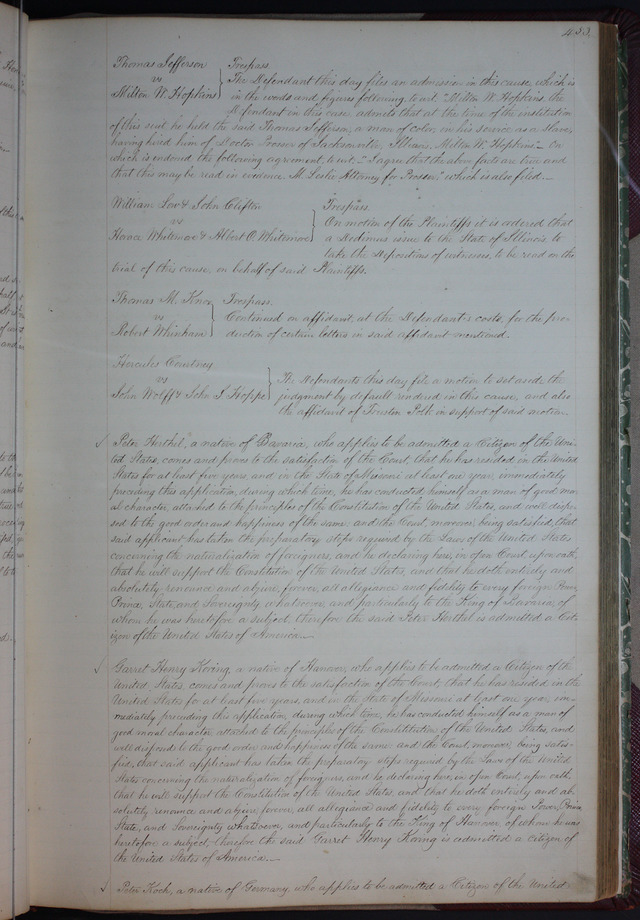 433.
Thomas Jefferson } Trespass.
vs } The Defendant this day files an admission in this cause, which is
Milton W. Hopkins } in the words and figures following to wit: "Milton W. Hopkins the
Defendant in this case admits that at the time of the institution
of this suit he held the said Thomas Jefferson, a man of color, in his service as a slave,
having hired him of Doctor Prosser of Jacksonville, Illinois, Milton W. Hopkins" On
which is endorsed the following agreement, to wit: "I agree that the above facts are true and
that this may be read in evidence. M. Leslie Attorney for Prosser" which is also filed.
William Low & John Clifton } Trespass.
vs } On motion of the Plaintiffs it is ordered that
Horace Whitmore & Albert O. Whitmore } a Dedimus issue to the State of Illinois, to
take the Depositions of witnesses, to be read on the
trial of this cause, on behalf of said Plaintiffs.
Thomas M. Knox } Trespass.
vs } Continued on affidavit, at the Defendant's costs, for the pro-
Robert Whinham } duction of certain letters in said affidavit mentioned.
Hercules Courtney
vs } The Defendants this day file a motion to set aside the
John Wolff & John I. Hoppe } judgment by default rendered in this cause, and also
the affidavit of Trusten Polk in support of said motion.
Peter Herthel, a native of Bavaria, who applies to be admitted a Citizen of the Uni-
ted States, comes and proves to the satisfaction of the Court, that he has resided in the United
States for at least five years, and in the State of Missouri at least one year, immediately
preceding this application, during which time, he has conducted himself as a man of good mo-
ral character, attached to the principles of the Constitution of the United States, and well dispo-
sed to the good order and happiness of the same: and the Court, moreover, being satisfied, that
said applicant has taken the preparatory steps required by the Laws of the United States
concerning the naturalization of foreigners, and he declaring here, in open Court, upon oath,
that he will support the Constitution of the United States, and that he doth entirely and
absolutely renounce and abjure, forever, all allegiance and fidelity to every foreign Power,
Prince, State, and Sovereignty whatsoever, and particularly to the King of Bavaria, of
whom he was heretofore a subject, therefore the said Peter Herthel is admitted a Cit-
izen of the United States of America.
Garret Henry Koring, a native of Hanover, who applies to be admitted a Citizen of the
United States, comes and proves to the satisfaction of the Court, that he has resided in the
United States for at least five years, and in the State of Missouri at least one year, im-
mediately preceding this application, during which time, he has conducted himself as a man of
good moral character, attached to the principles of the Constitution of the United States, and
well disposed to the good order and happiness of the same: and the Court, moreover, being satis-
fied, that said applicant has taken the preparatory steps required by the Laws of the United
States concerning the naturalization of foreigners, and he declaring here, in open Court, upon oath,
that he will support the Constitution of the United States, and that he doth entirely and ab-
solutely renounce and abjure, forever, all allegiance and fidelity to every foreign Power, Prince,
State, and Sovereignty whatsoever, and particularly to the King of Hanover, of whom he was
heretofore a subject, therefore the said Garret Henry Koring is admitted a citizen of
the United States of America.
Peter Koch, a native of Germany, who applies to be admitted a Citizen of the United